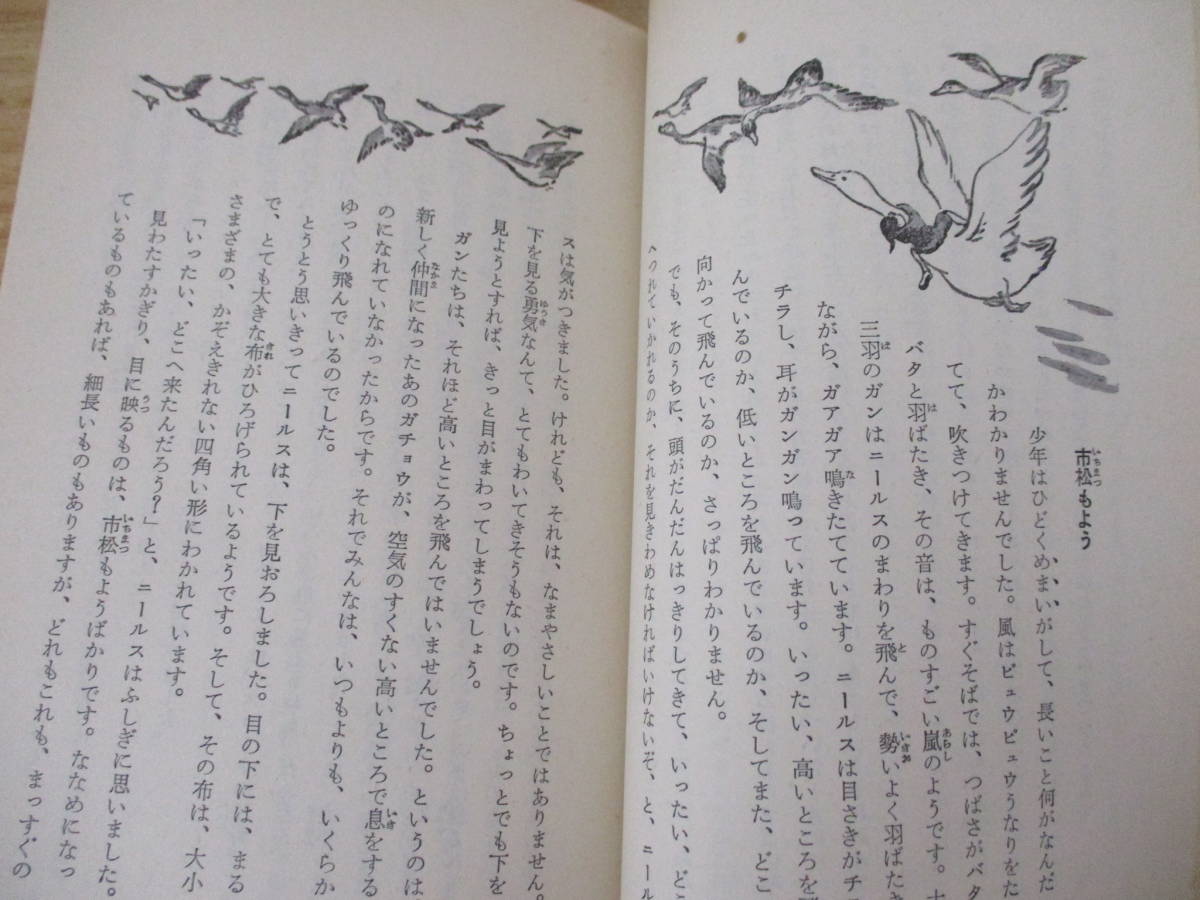 市松もよう
少年はひどくめまいがして、長いこと何がなんだ
かわかりませんでした。風はピュウピュウうなりをた
てて、吹きつけてきます。すぐそばでは、つばさがバタ
バタと羽ばたき、その音は、ものすごい嵐のようです。十
三羽のガンはニールスのまわりを飛んで、勢いよく羽ばたき
ながら、ガアガア鳴きたてています。ニールスは目さきがチ
チラし、耳がガンガン鳴っています。いったい、高いところを
んでいるのか、低いところを飛んでいるのか、そしてまた、どこ
向かって飛んでいるのか、さっぱりわかりません。
でも、そのうちに、頭がだんだんはっきりしてきて、いったい、どこ
へつれていかれるのか、それを見きわめなければいけないぞ、と、ニール
スは気がつきました。けれども、それは、なまやさしいことではありません。
下を見る勇気なんて、とてもわいてきそうもないのです。ちょっとでも下を
見ようとすれば、きっと目がまわってしまうでしょう。
ガンたちは、それほど高いところを飛んではいませんでした。というのは
新しく仲間になったあのガチョウが、空気のすくない高いところで息をする
のになれていなかったからです。それでみんなは、いつもよりも、いくらか
ゆっくり飛んでいるのでした。
とうとう思いきってニールスは、下を見おろしました。目の下には、まる
で、とても大きな布がひろげられているようです。そして、その布は、大小
さまざまの、かぞえきれない四角い形にわかれています。
「いったい、どこへ来たんだろう？」と、ニールスはふしぎに思いました。
見わたすかぎり、目に映るものは、市松もようばかりです。ななめになっ
ているものもあれば、細長いものもありますが、どれもこれも、まっすぐの